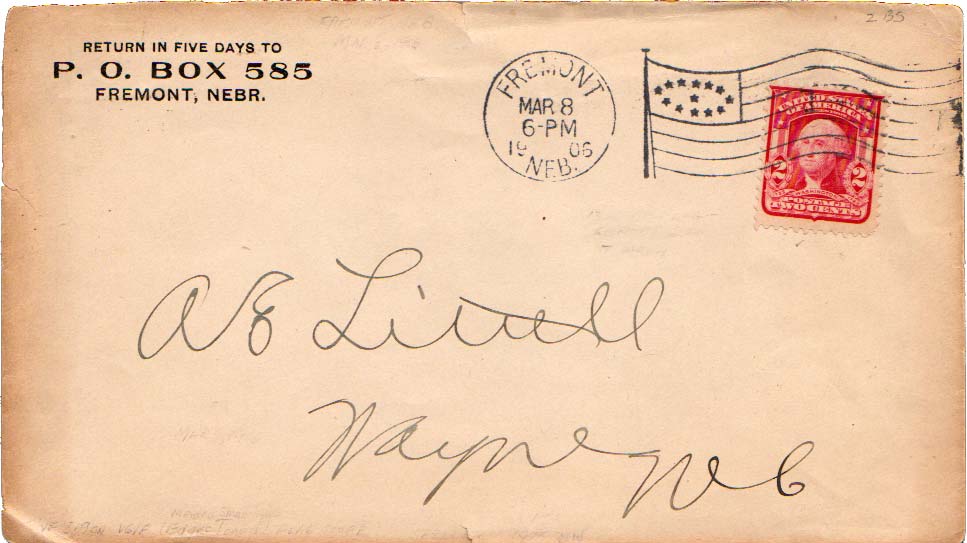 2 BS
RETURN IN FIVE DAYS TO
P. O. BOX 585
FREMONT, NEBR.
FREMONT
MAR 8
6-PM
19 06
NEB.
UNITED STATES
OF AMERICA
2 2
WASHINGTON
POSTAGE
TWO CENTS
A E Littell
Wayne Neb